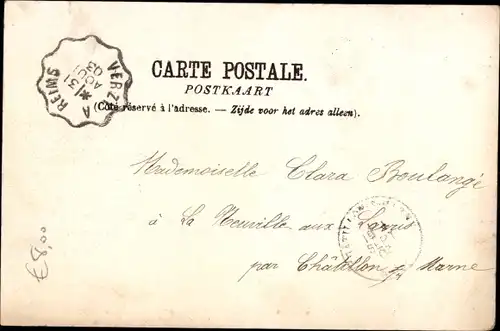 CARTE POSTALE.
POSTKAART
(Côté réservé à l'adresse. — Zijde voor het adres alleen).
VERZY A REIMS
31
AOUT
03
Mademoiselle Clara Boulangé
à La Neuville aux Larris
par Châtillon s/ Marne
€8,00